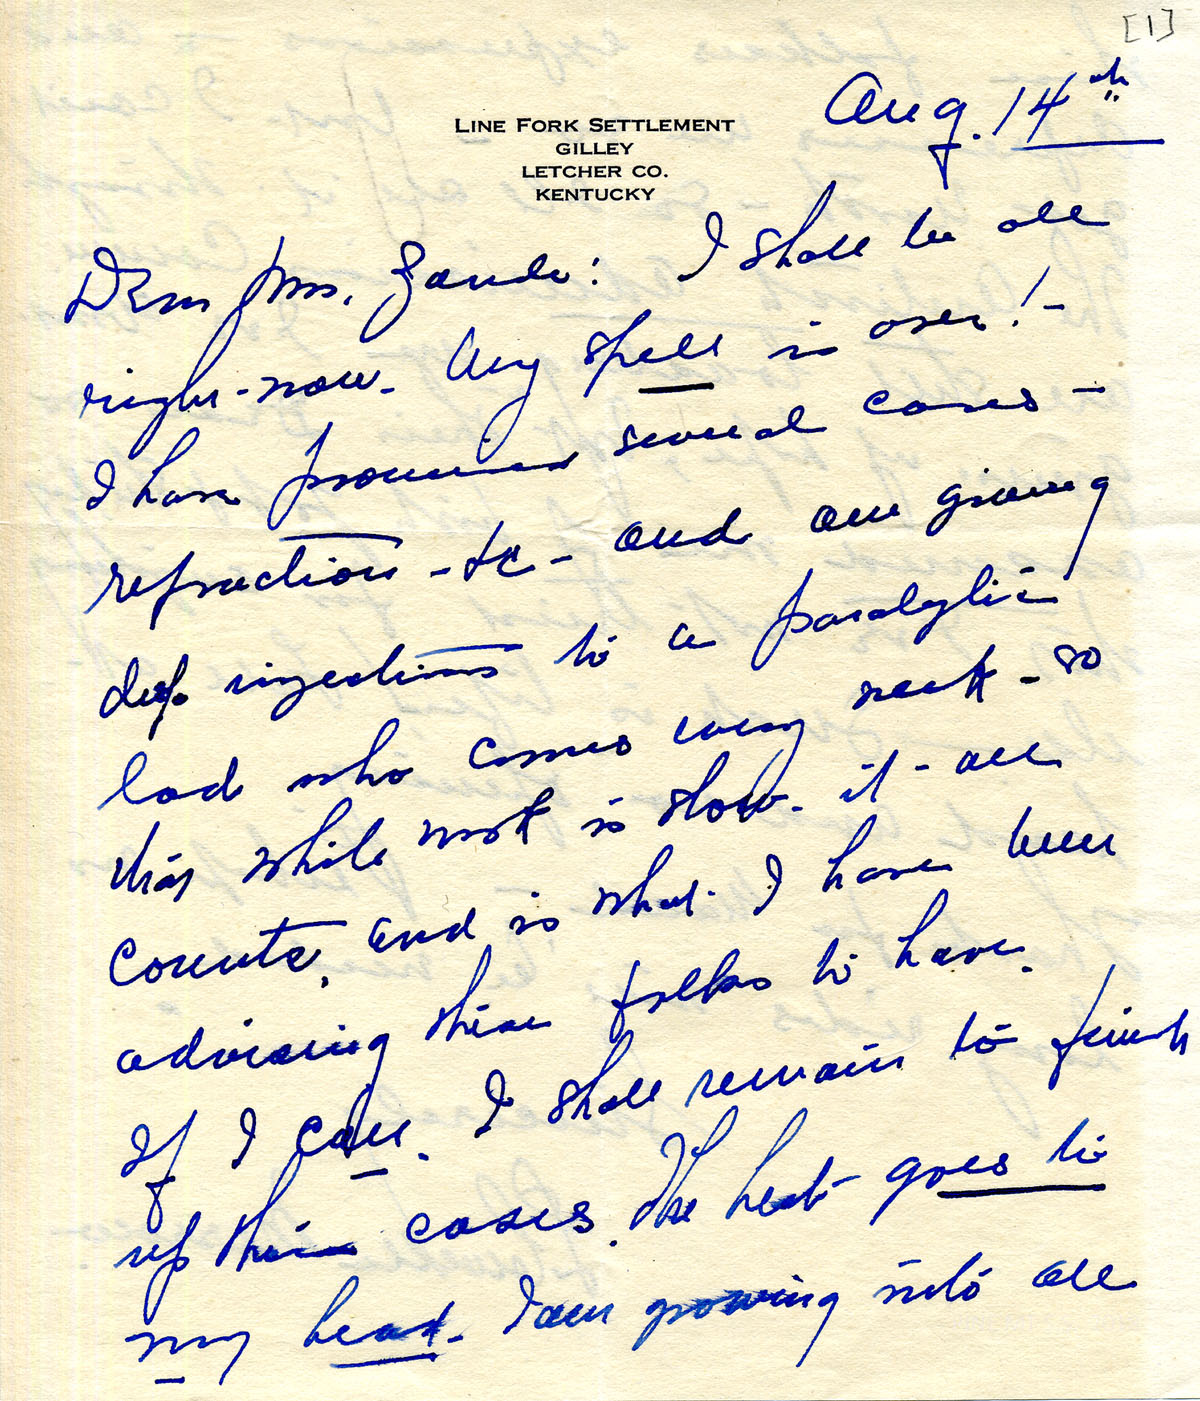 [1]
Aug. 14th
LINE FORK SETTLEMENT
GILLEY
LETCHER CO.
KENTUCKY
Dear Mrs. Zande: I shall be all
right now - Any spell is over! -
I have promised several cases -
refraction - etc - and am giving
deep injections to a paralytic
lad who comes every week - so
this while work is slow - it - all
counts, and is what I have been
advising these folks to have.
If I can. I shall remain to finish
up these cases. The heat goes to
my head. I am growing into all